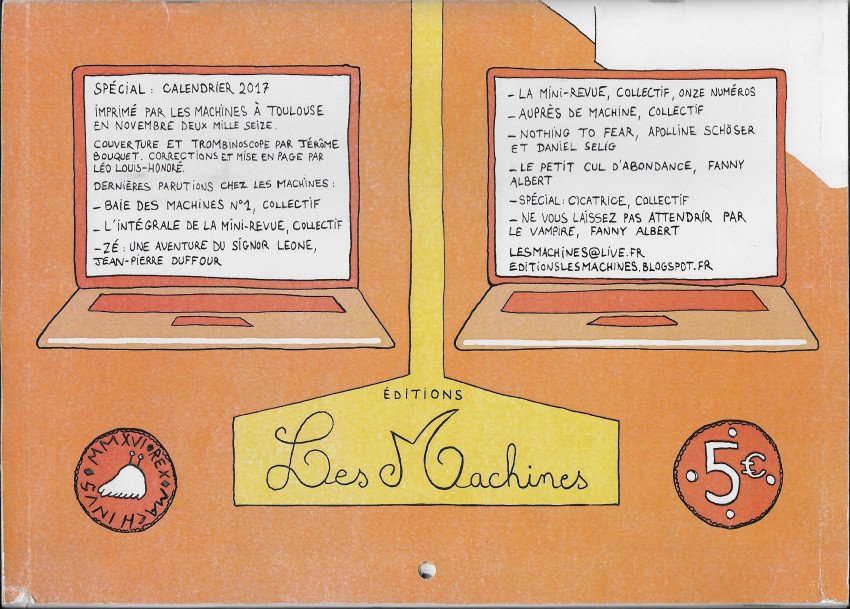 SPÉCIAL : CALENDRIER 2017
IMPRIMÉ PAR LES MACHINES À TOULOUSE
EN NOVEMBRE DEUX MILLE SEIZE.
COUVERTURE ET TROMBINOSCOPE PAR JÉRÔME
BOUQUET. CORRECTIONS ET MISE EN PAGE PAR
LÉO LOUIS-HONORÉ.
DERNIÈRES PARUTIONS CHEZ LES MACHINES :
– BAIE DES MACHINES N°1, COLLECTIF
– L'INTÉGRALE DE LA MINI-REVUE, COLLECTIF
– ZÉ : UNE AVENTURE DU SIGNOR LEONE,
JEAN-PIERRE DUFFOUR
– LA MINI-REVUE, COLLECTIF, ONZE NUMÉROS
– AUPRÈS DE MACHINE, COLLECTIF
– NOTHING TO FEAR, APOLLINE SCHÖSER
ET DANIEL SELIG
– LE PETIT CUL D'ABONDANCE, FANNY
ALBERT
– SPÉCIAL : CICATRICE, COLLECTIF
– NE VOUS LAISSEZ PAS ATTENDRIR PAR
LE VAMPIRE, FANNY ALBERT
LESMACHINES@LIVE.FR
EDITIONSLESMACHINES.BLOGSPOT.FR
ÉDITIONS
Les Machines
MMXVI • REX • MACHINVS
5€